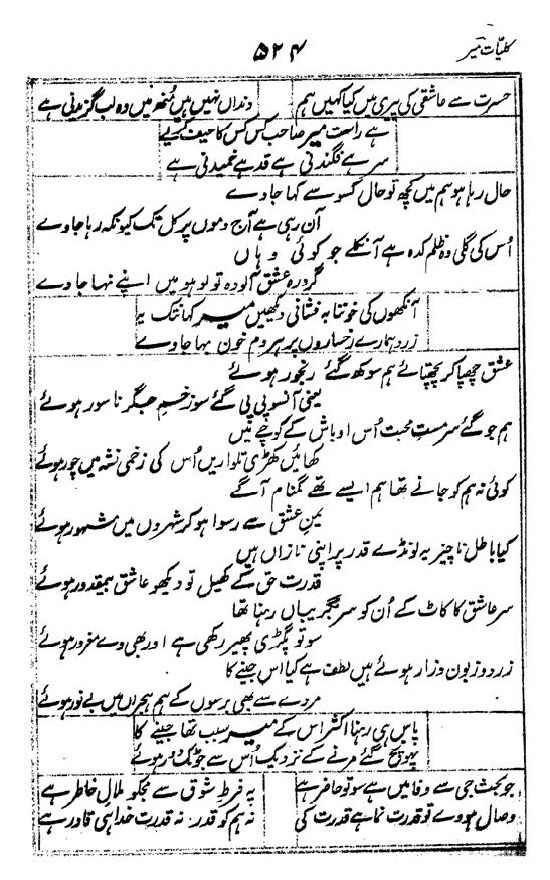 کلیّات میر
۵۲۴
حسرت سے عاشقی کی پیری میں کیا کہیں ہم
دنداں نہیں ہیں مُنھ میں وہ لب گزیدنی ہے
ہے راست میر صاحب کس کس کا حیف کریے
سر ہے فگندنی ہے قد ہے خمیدنی ہے
حال رہا ہو ہم میں کچھ تو حال کسو سے کہا جاوے
آن رہی ہے آج دموں پر کل تک کیونکہ رہا جاوے
اُس کی گلی وہ ظلم کدہ ہے آنکلے جو کوئی وہاں
گردِ رہِ عشق آلودہ تو لوہو میں اپنے نہا جاوے
آنکھوں کی خونتابہ فشانی دیکھیں میر کہانتک یہ
زرد ہمارے رخساروں پر ہر دم خون بہا جاوے
عشق چھپا کر پچھتائے ہم سوکھ گئے رنجور ہوئے
یعنی آنسو پی پی گئے سو زخمِ جگر ناسور ہوئے
ہم جو گئے سرمستِ محبت اُس اوباش کے کوچے میں
کھائیں کھڑی تلواریں اُس کی زخمی نشہ میں چور ہوئے
کوئی نہ ہم کو جانے تھا ہم ایسے تھے گمنام آگے
یمنِ عشق سے رسوا ہو کر شہروں میں مشہور ہوئے
کیا باطل ناچیز یہ لونڈے قدر پر اپنی نازاں ہیں
قدرت حق کے کھیل تو دیکھو عاشق بیمقدور ہوئے
سر عاشق کا کاٹ کے اُن کو سر بگریباں رہنا تھا
سو تو پگڑی پھیر رکھی ہے اور بھی وے مغرور ہوئے
زرد و زبون و زار ہوئے ہیں لطف ہے کیا اس جینے کا
مردے سے بھی برسوں کے ہم ہجراں میں بے نور ہوئے
پاس ہی رہنا اکثر اس کے میر سبب تھا جینے کا
پہونچ گئے مرنے کے نزدیک اُس سے جو ٹک دُور ہوئے
جو بحث جی سے وفا میں ہے سو تو حاضر ہے
پہ فرطِ شوق سے مجکو ملالِ خاطر ہے
وصال ہووے تو قدرت نما ہے قدرت کی
نہ ہم کو قدر نہ قدرت خدا ہی قادر ہے